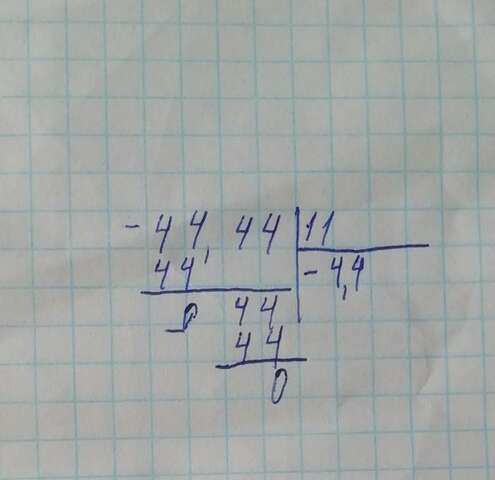 - 44,44 | 11
44 | - 4,4
0 44
44
0